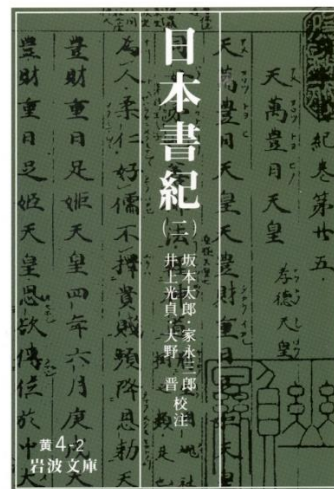 日本書紀
(二)
坂本太郎・家永三郎
井上光貞・大野 晋 校注
黄4-2
岩波文庫
紀卷第廿五
天萬豊日天皇 孝徳天皇
天萬豊日天皇天豊財重日
為人柔仁好儒不擇貴賤頻降恩勅天
豊財重日足姫天皇四年六月庚
豊財重日足姫天皇思欲傳位於中大